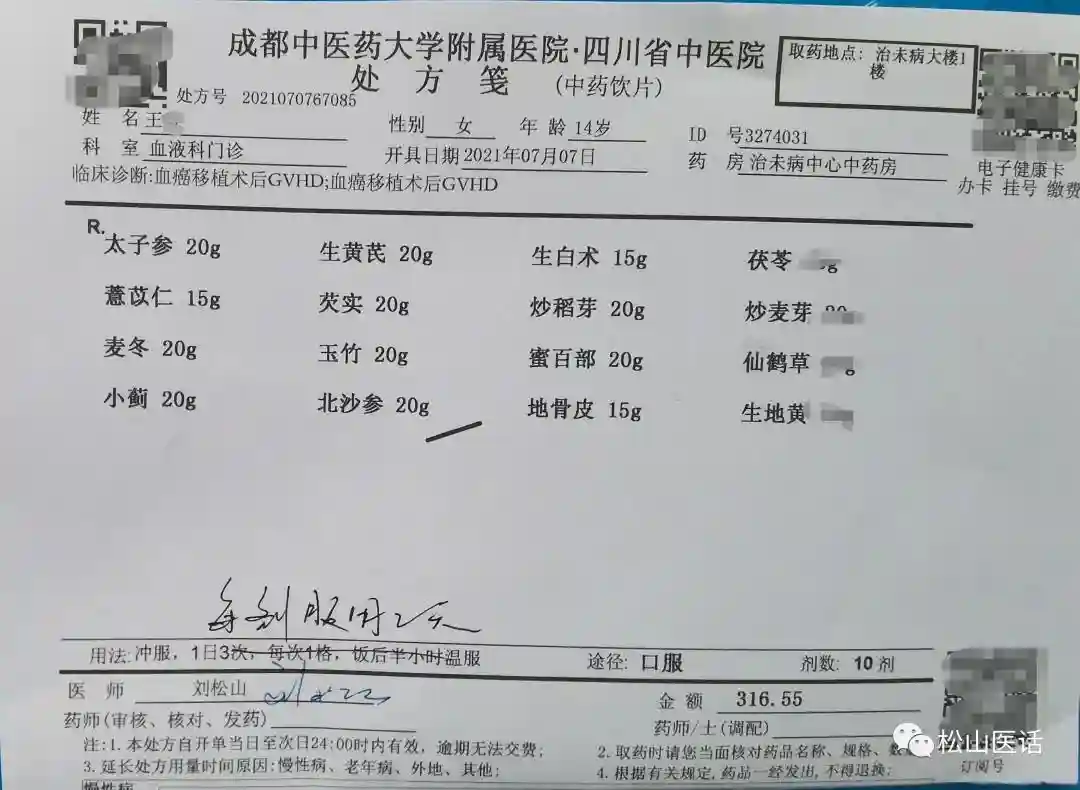 成都中医药大学附属医院·四川省中医院
处 方 笺 (中药饮片)
取药地点: 治未病大楼1
楼
处方号 2021070767085
姓 名 王
性别 女 年 龄 14岁
ID 号3274031
科 室 血液科门诊
开具日期 2021年07月07日
药 房 治未病中心中药房
电子健康卡
办卡 挂号 缴费
临床诊断:血癌移植术后GVHD;血癌移植术后GVHD
R.
太子参 20g 生黄芪 20g 生白术 15g 茯苓 g
薏苡仁 15g 芡实 20g 炒稻芽 20g 炒麦芽
麦冬 20g 玉竹 20g 蜜百部 20g 仙鹤草 g
小蓟 20g 北沙参 20g 地骨皮 15g 生地黄
每剂服用2天
用法: 冲服，1日3次，每次1格，饭后半小时温服 途径: 口服 剂数: 10 剂
医 师 刘松山 金 额 316.55
药师(审核、核对、发药) 药师/士(调配)
注:1. 本处方自开单当日至次日24:00时内有效，逾期无法交费; 2. 取药时请您当面核对药品名称、规格、数
3. 延长处方用量时间原因: 慢性病、老年病、外地、其他; 4. 根据有关规定, 药品一经发出, 不得退换;
慢性病
订阅号
松山医话